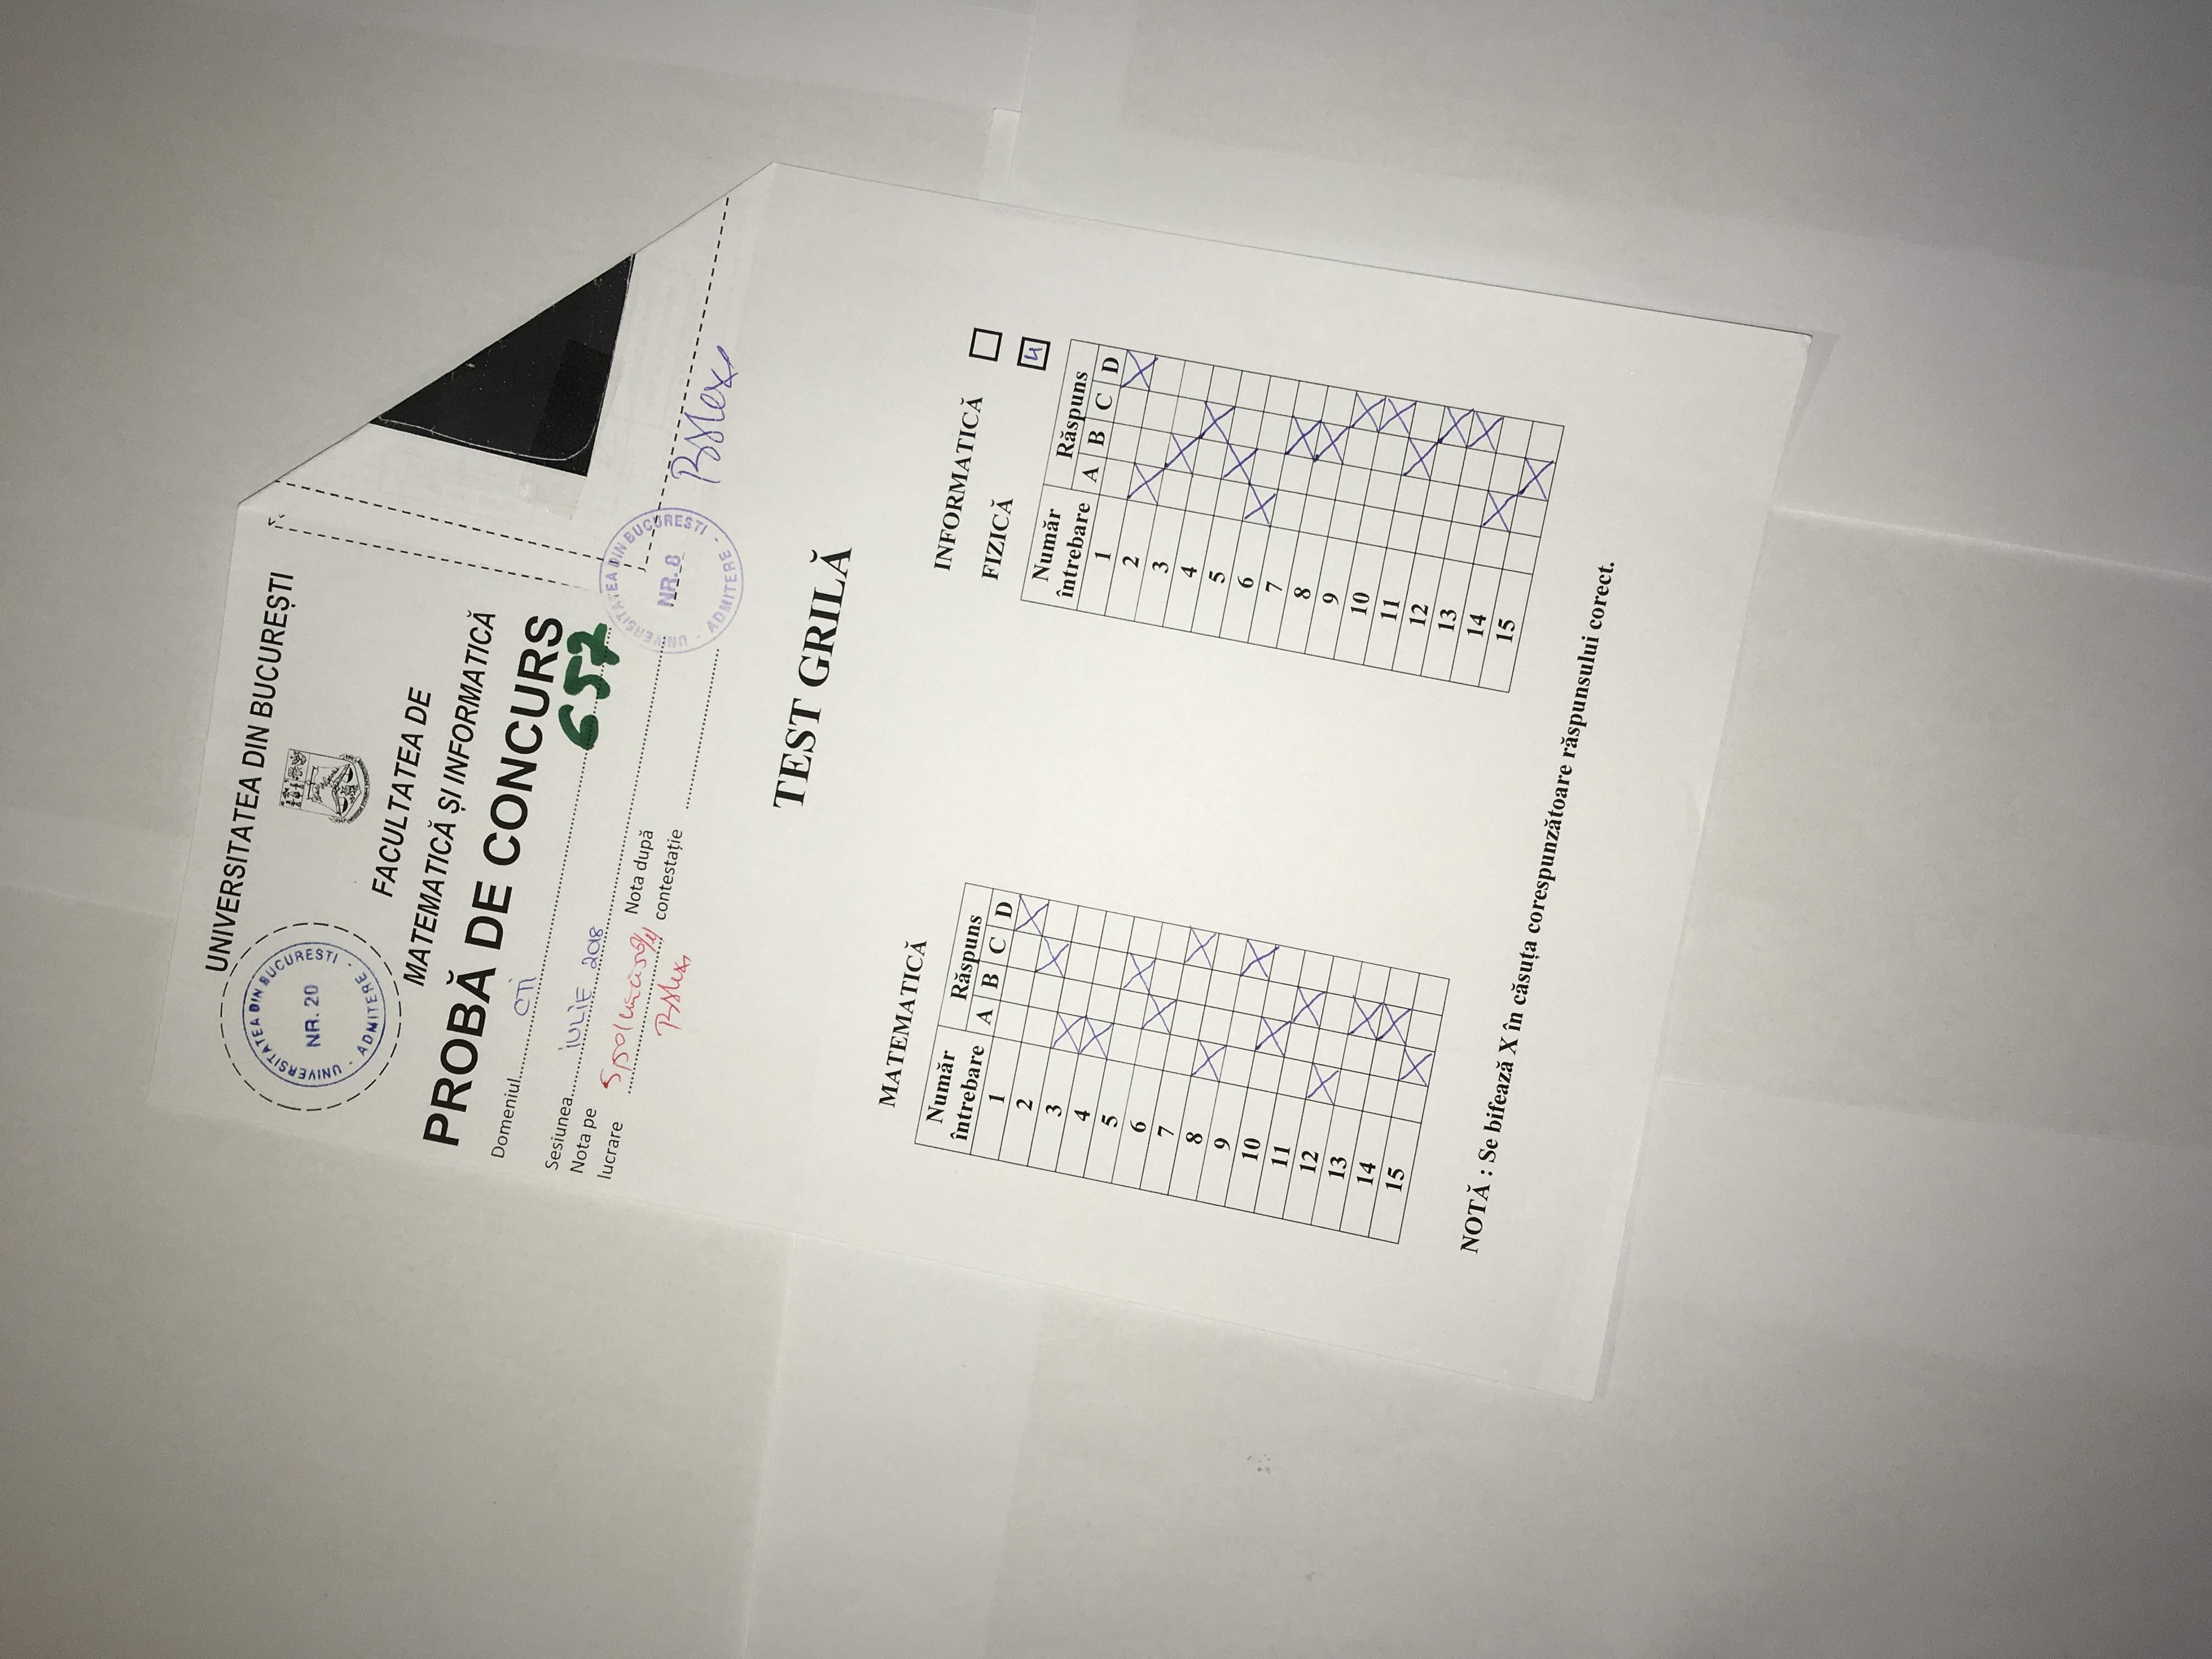 UNIVERSITATEA DIN BUCUREȘTI
UNIVERSITATEA DIN BUCURESTI
NR. 20
ADMITERE
FACULTATEA DE
MATEMATICĂ ȘI INFORMATICĂ
PROBĂ DE CONCURS
Domeniul CTI
657
Sesiunea IULIE 2018
Nota pe
lucrare
Nota după
contestație
UNIVERSITATEA DIN BUCURESTI
NR. 8
ADMITERE
TEST GRILĂ
MATEMATICĂ
Număr
întrebare
Răspuns
A B C D
1 X
2 X
3 X
4 X
5 X
6 X
7 X
8 X
9 X
10 X
11 X
12 X
13 X
14 X
15 X
INFORMATICĂ
FIZICĂ 4
Număr
întrebare
Răspuns
A B C D
1 X
2 X
3 X
4 X
5 X
6 X
7 X
8 X
9 X
10 X
11 X
12 X
13 X
14 X
15 X
NOTĂ : Se bifează X în căsuța corespunzătoare răspunsului corect.